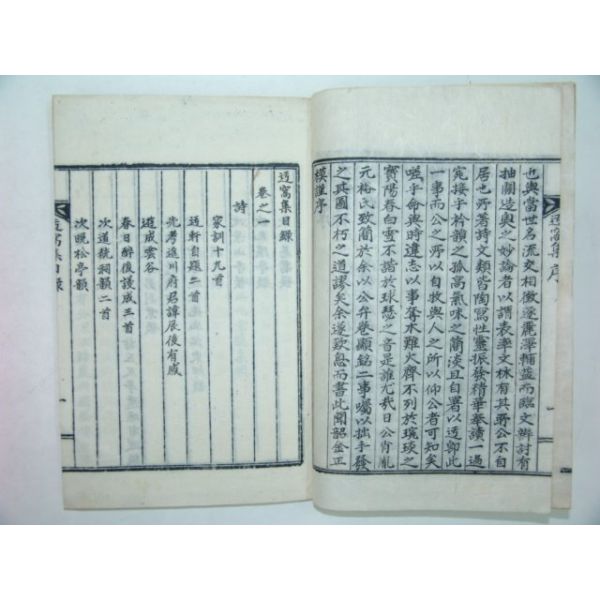 也與當世名流交相徵逐麗澤輔益而臨文辨討有
抽關造奧之妙論者以謂表率文林有其蔣公不自
居也所著詩文類皆陶寫性靈振發精華奉讀一過
寃接乎衿韻之孤高氣味之簡淡且自署以逌卽此
一事而公之所以自牧與人之所以仰公者可知矣
嗟乎命與時違志以事奪本難火齊不列於琬琰之
寶陽春白雪不諧於球瑟之音是誰尤哉日公胄胤
元格氏致簡於余以公弁卷顯銘二事囑以拙手發
之其圖不朽之道謬矣余遂致怠而書此聞韶金正
模謹序
逌窩集目錄
卷之一
詩
家訓十九首
逌軒自題二首
先考進川府君諱辰後有感
遊成雲谷
春日醉後謾成三首
次道統祠韻二首
次晩松亭韻